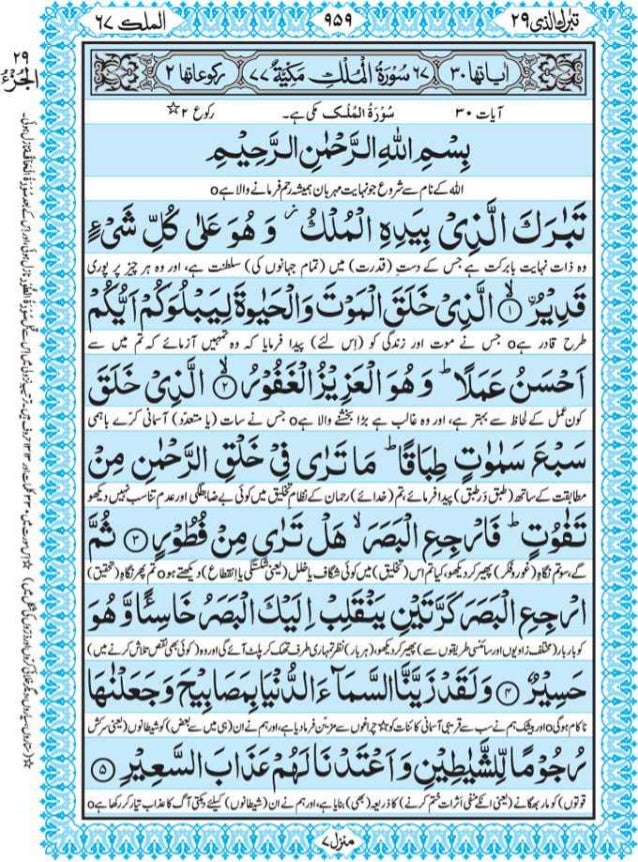 تبٰرك الذی ٢٩
٩٥٩
الملك ٦٧
اٰیاتها ٣٠ ٦٧ سُوْرَةُ الْمُلْكِ مَكِّیَّةٌ ٧٧ رکوعاتها ٢
آیات ٣٠ سُوْرَةُ الملک مکی ہے۔ رکوع ٢☆
بِسْمِ اللهِ الرَّحْمٰنِ الرَّحِیْمِ
اللہ کے نام سے شروع جو نہایت مہربان ہمیشہ رحم فرمانے والا ہے o
تَبٰرَكَ الَّذِیْ بِیَدِهِ الْمُلْكُ ؗ وَ هُوَ عَلٰی كُلِّ شَیْءٍ
وہ ذات نہایت بابرکت ہے جس کے دستِ (قدرت) میں (تمام جہانوں کی) سلطنت ہے، اور وہ ہر چیز پر پوری
قَدِیْرُ ۙ﴿۱﴾ الَّذِیْ خَلَقَ الْمَوْتَ وَ الْحَیٰوةَ لِیَبْلُوَكُمْ اَیُّكُمْ
طرح قادر ہے o جس نے موت اور زندگی کو (اِس لئے) پیدا فرمایا کہ وہ تمہیں آزمائے کہ تم میں سے
اَحْسَنُ عَمَلًا ؕ وَ هُوَ الْعَزِیْزُ الْغَفُوْرُ ۙ﴿۲﴾ الَّذِیْ خَلَقَ
کون عمل کے لحاظ سے بہتر ہے، اور وہ غالب ہے بڑا بخشنے والا ہے o جس نے سات (یا متعدّد) آسمانی کرّے باہمی
سَبْعَ سَمٰوٰتٍ طِبَاقًا ؕ مَا تَرٰی فِیْ خَلْقِ الرَّحْمٰنِ مِنْ
مطابقت کے ساتھ (طبق دَر طبق) پیدا فرمائے، تم (خدائے) رحمان کے نظامِ تخلیق میں کوئی بے ضابطگی اور عدمِ تناسب نہیں دیکھو
تَفٰوُتٍ ؕ فَارْجِعِ الْبَصَرَ ۙ هَلْ تَرٰی مِنْ فُطُوْرٍ ﴿۳﴾ ثُمَّ
گے، سو تم نگاہِ (غور و فکر) پھیر کر دیکھو، کیا تم اس (تخلیق) میں کوئی شگاف یا خلل (یعنی شکستگی یا اِنقطاع) دیکھتے ہو o تم پھر نگاہِ (تحقیق)
ارْجِعِ الْبَصَرَ كَرَّتَیْنِ یَنْقَلِبْ اِلَیْكَ الْبَصَرُ خَاسِئًا وَّ هُوَ
کو بار بار (مختلف زاویوں اور سائنسی طریقوں سے) پھیر کر دیکھو، (ہر بار) نظر تمہاری طرف تھک کر پلٹ آئے گی اور وہ (کوئی بھی نقص تلاش کرنے میں)
حَسِیْرٌ ﴿۴﴾ وَ لَقَدْ زَیَّنَّا السَّمَآءَ الدُّنْیَا بِمَصَابِیْحَ وَ جَعَلْنٰهَا
ناکام ہو گی o اور بیشک ہم نے سب سے قریبی آسمانی کائنات کو☆ چراغوں سے مزیّن فرما دیا ہے، اور ہم نے ان (ہی میں سے بعض) کو شیطانوں (یعنی سرکش
رُجُوْمًا لِّلشَّیٰطِیْنِ وَ اَعْتَدْنَا لَهُمْ عَذَابَ السَّعِیْرِ ﴿۵﴾
قوتوں) کو مار بھگانے (یعنی انکے منفی اَثرات ختم کرنے) کا ذریعہ (بھی) بنایا ہے، اور ہم نے ان (شیطانوں) کیلئے دہکتی آگ کا عذاب تیار کر رکھا ہے o
منزل ۷
٢٩
الجزء